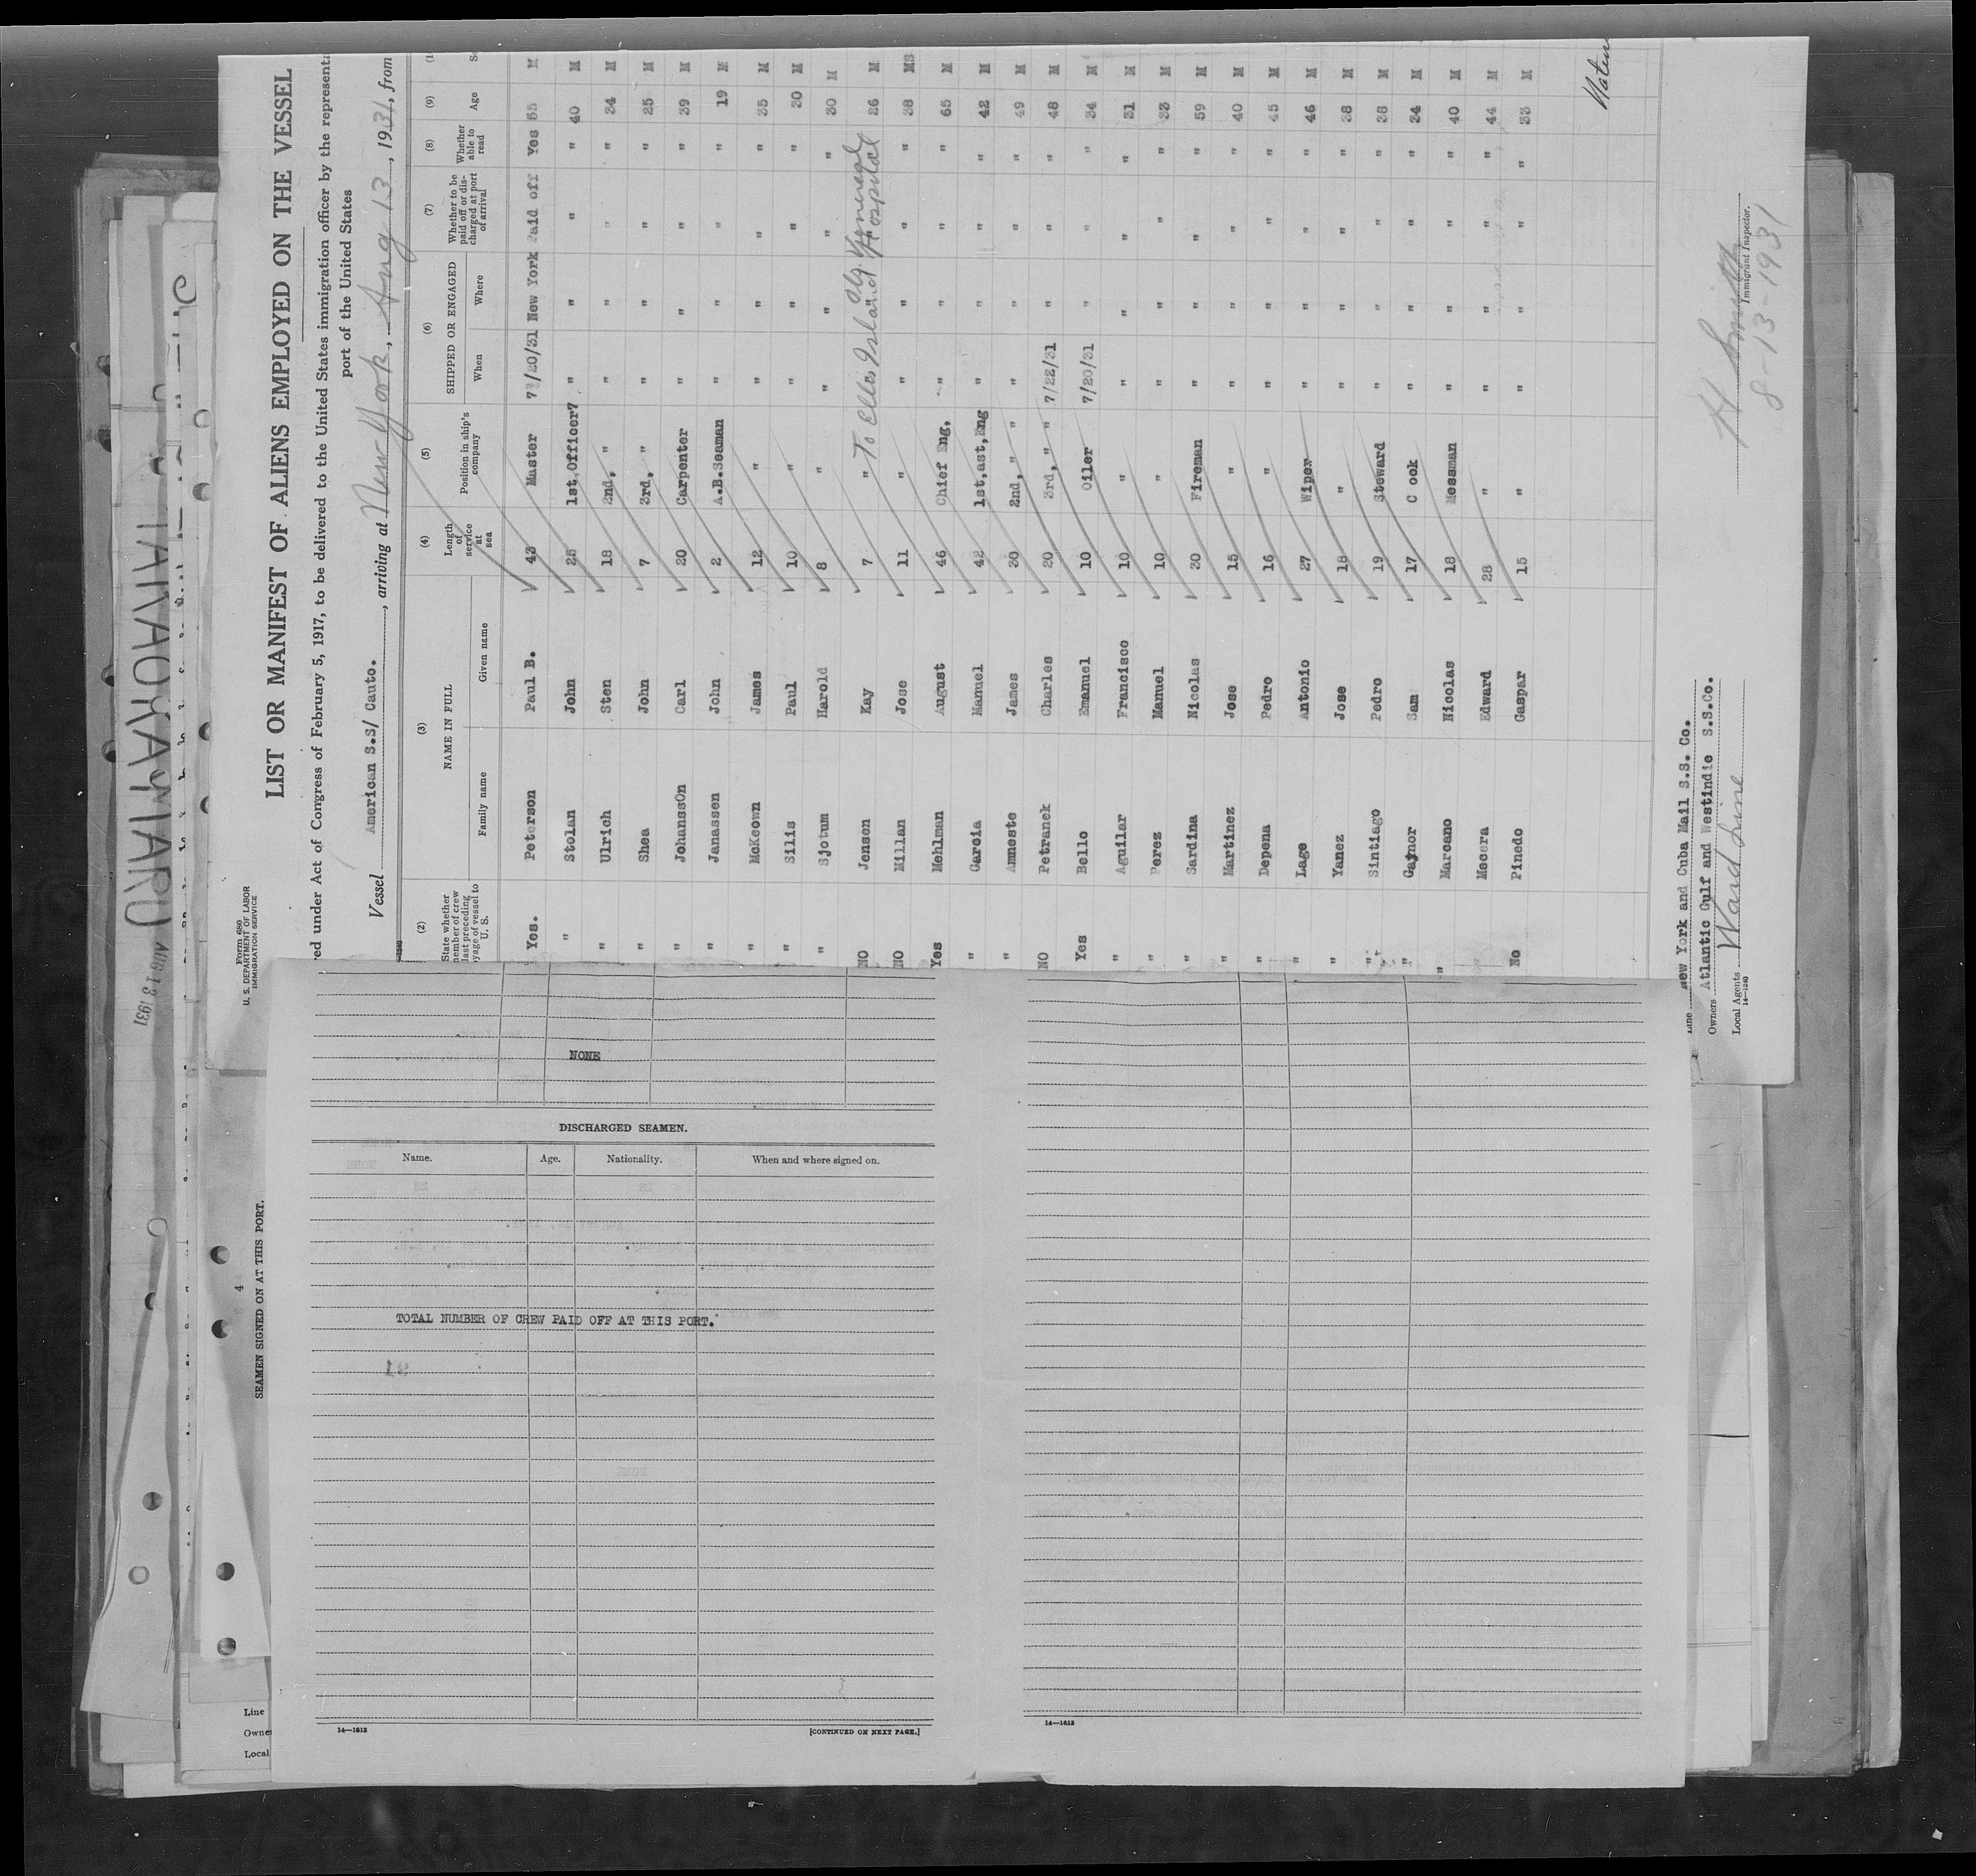 Form 680
U. S. DEPARTMENT OF LABOR
IMMIGRATION SERVICE
LIST OR MANIFEST OF ALIENS EMPLOYED ON THE VESSEL
ed under Act of Congress of February 5, 1917, to be delivered to the United States immigration officer by the representa
port of the United States
Vessel American S.S/ Cauto., arriving at New York, Aug 13, 1931, from
(2) (3) (4) (5) (6) (7) (8) (9)
State whether member of crew last preceding voyage of vessel to U. S. NAME IN FULL Family name Given name Length of service at sea Position in ship's company SHIPPED OR ENGAGED When Where Whether to be paid off or discharged at port of arrival Whether able to read Age
Yes. Peterson Paul B. 43 Master 7/20/31 New York Paid off Yes 55 M
" Stolan John 25 1st,Officer7 " " " " 40 M
" Ulrich Sten 18 2nd, " " " " " 34 M
" Shea John 7 3rd, " " " " " 25 M
" JohanssOn Carl 20 Carpenter " " " " 39 M
" Janassen John 2 A.B.Seaman " " " " 19 M
" McKeown James 12 " " " " " 35 M
" Silis Paul 10 " " " " " 20 M
" Sjotum Harold 8 " " " " " 30 M
NO Jensen Kay 7 " To Ellis Island Hospital 26 M
NO Millan Jose 11 " " " " " 38 MS
Yes Mehlman August 46 Chief Eng, " " " " 65 M
" Garcia Manuel 42 1st,ast,Eng " " " " 42 M
" Amneste James 30 2nd, " " " " " " 49 M
NO Petranek Charles 20 3rd, " " 7/22/31 " " " 48 M
Yes Bello Emanuel 10 Oiler 7/20/31 " " " 34 M
" Aguilar Francisco 10 " " " " " 31 M
" Perez Manuel 10 " " " " " 33 M
" Sardina Nicolas 30 Fireman " " " " 59 M
" Martinez Jose 15 " " " " " 40 M
" Depena Pedro 16 " " " " " 45 M
" Lage Antonio 27 Wiper " " " " 46 M
" Yanez Jose 18 " " " " " 38 M
" Sintiago Pedro 19 Steward " " " " 38 M
" Gaynor Sam 17 C ook " " " " 34 M
" Marcano Nicolas 18 Messman " " " " 40 M
Mecera Edward 28 " " " " " 44 M
No Pinedo Gaspar 15 " " " " " 33 M
Line New York and Cuba Mail S.S. Co.
Owners Atlantic Gulf and Westindie S.S.Co.
Local Agents Ward Line
14—1240
H Smith
Immigrant Inspector.
8-13-1931
AUG 13 1931
4
SEAMEN SIGNED ON AT THIS PORT.
NONE
DISCHARGED SEAMEN.
Name. Age. Nationality. When and where signed on.
TOTAL NUMBER OF CREW PAID OFF AT THIS PORT.
14—1613
[CONTINUED ON NEXT PAGE.]
14—1613
Line
Owne
Local